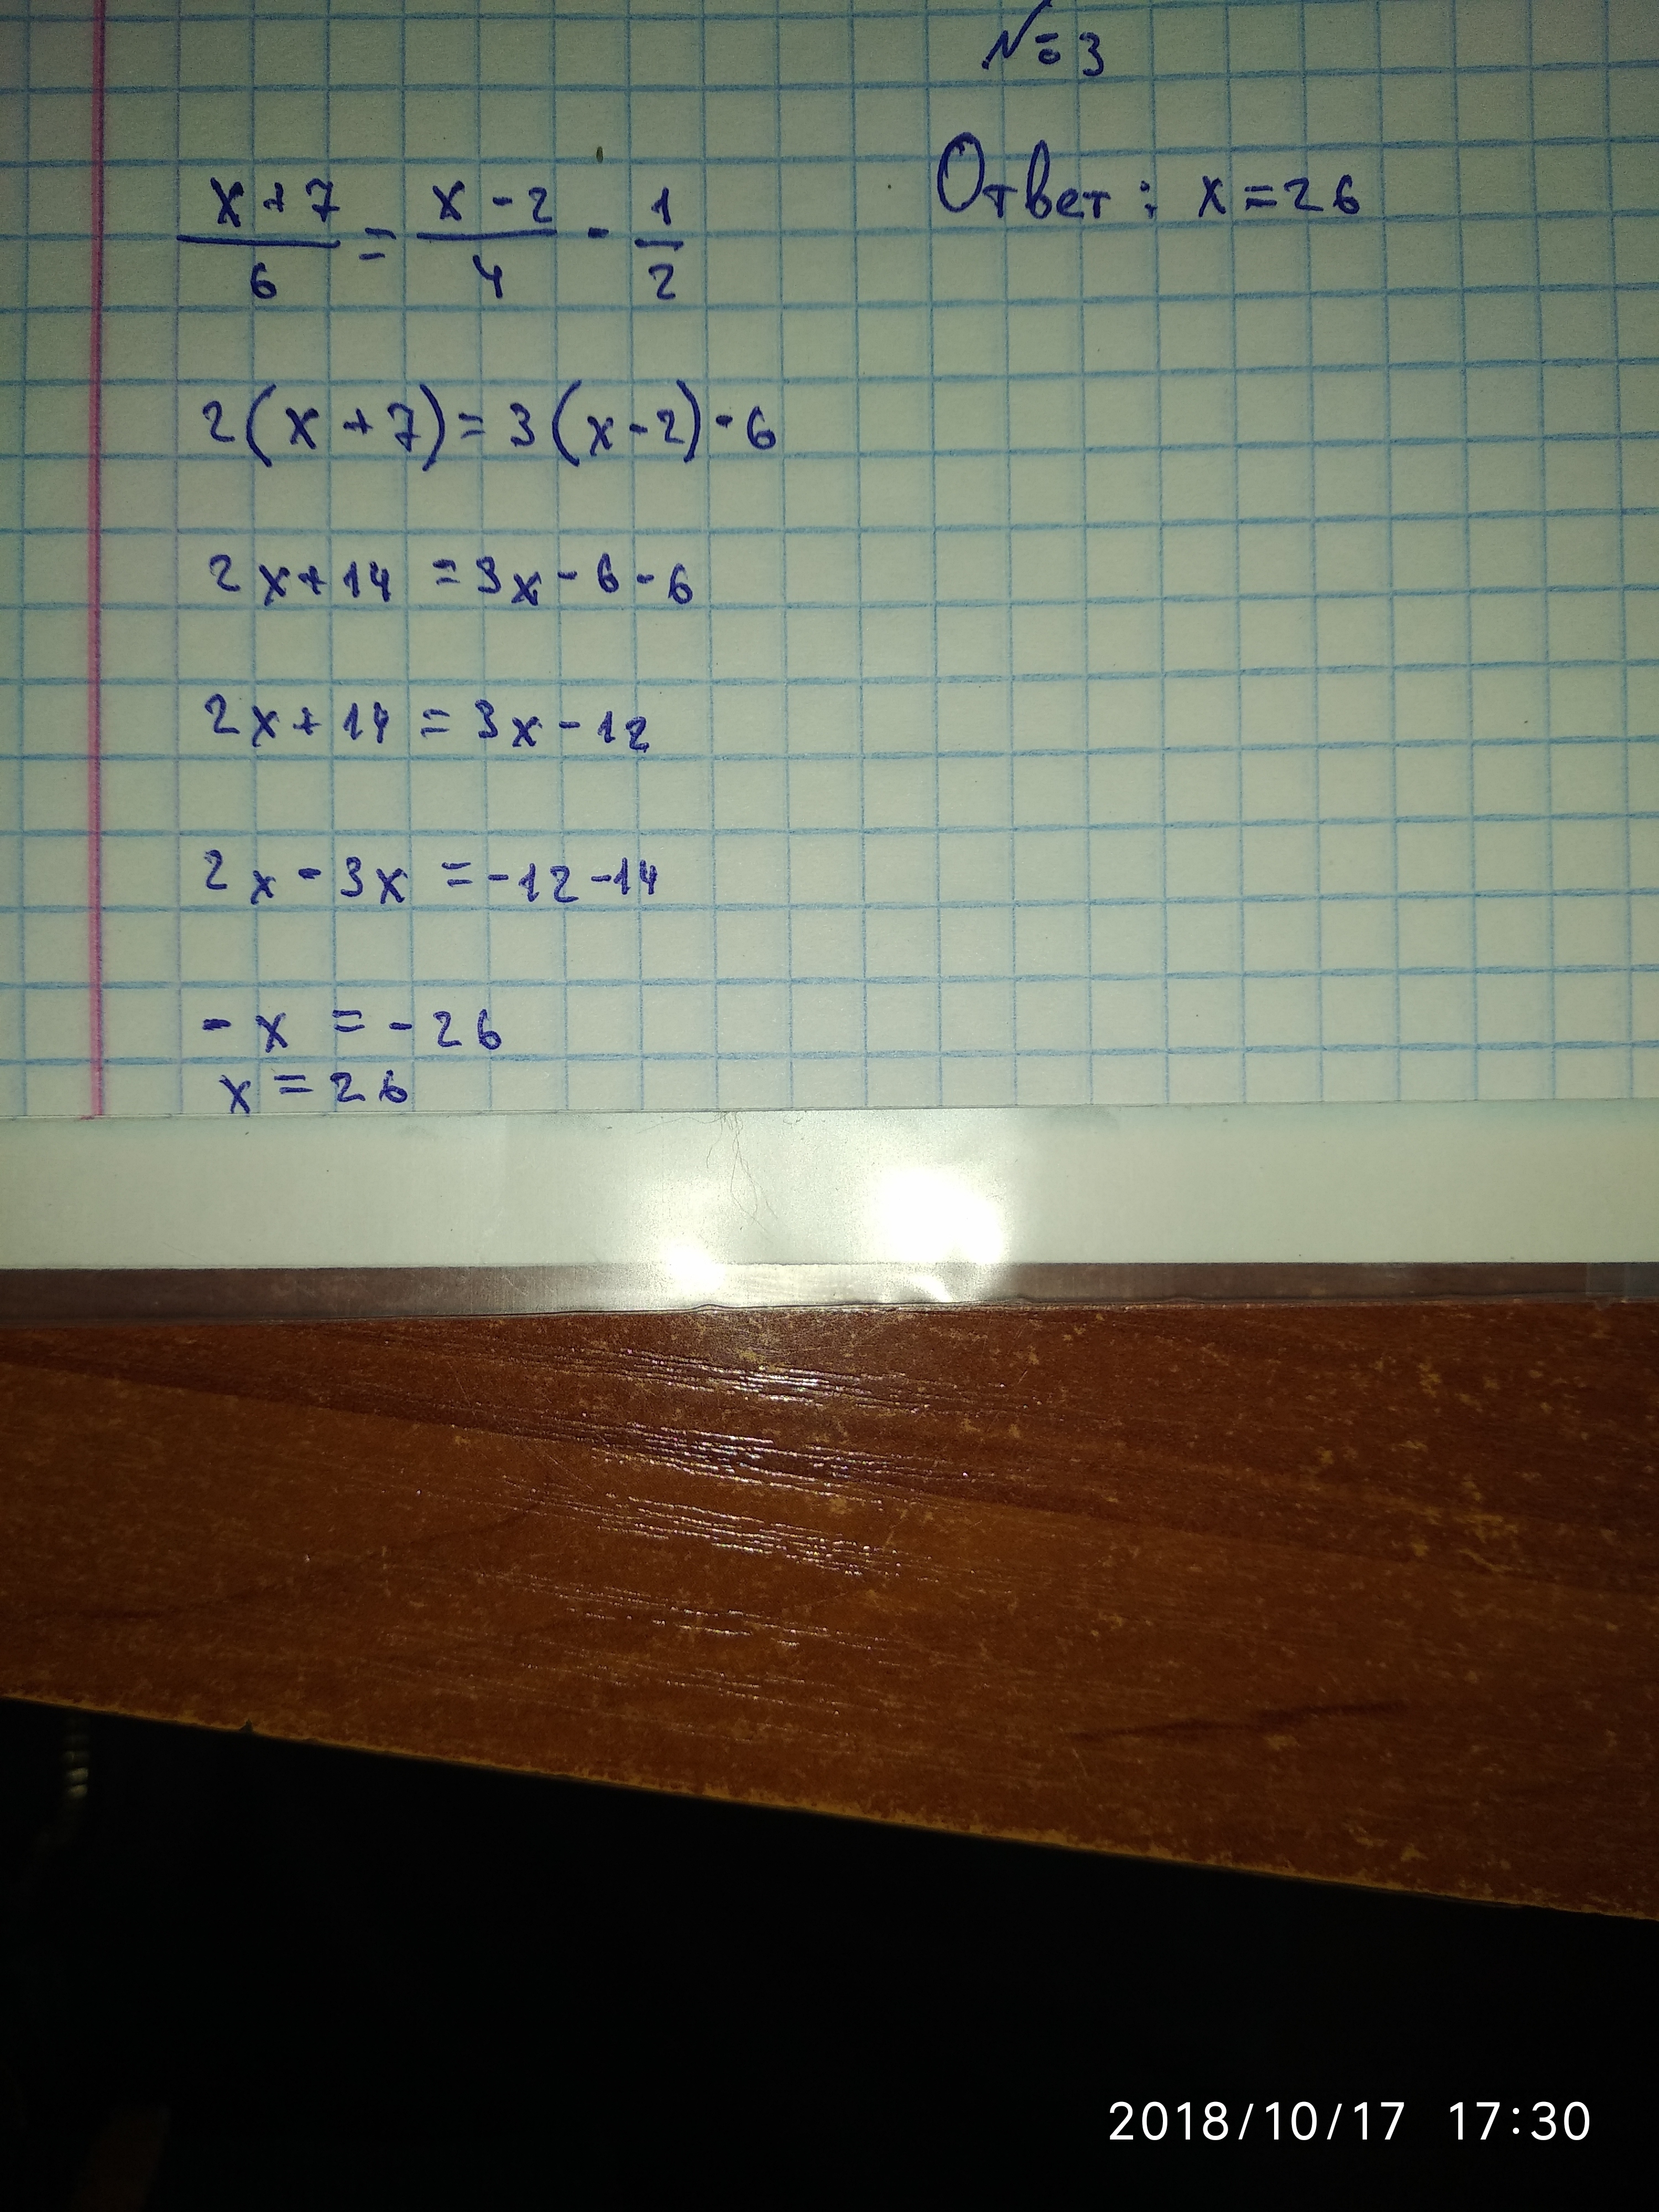 №3
Ответ: x=26
x+7/6 = x-2/4 - 1/2
2(x+7)=3(x-2)-6
2x+14=3x-6-6
2x+14=3x-12
2x-3x=-12-14
-x=-26
x=26
2018/10/17 17:30